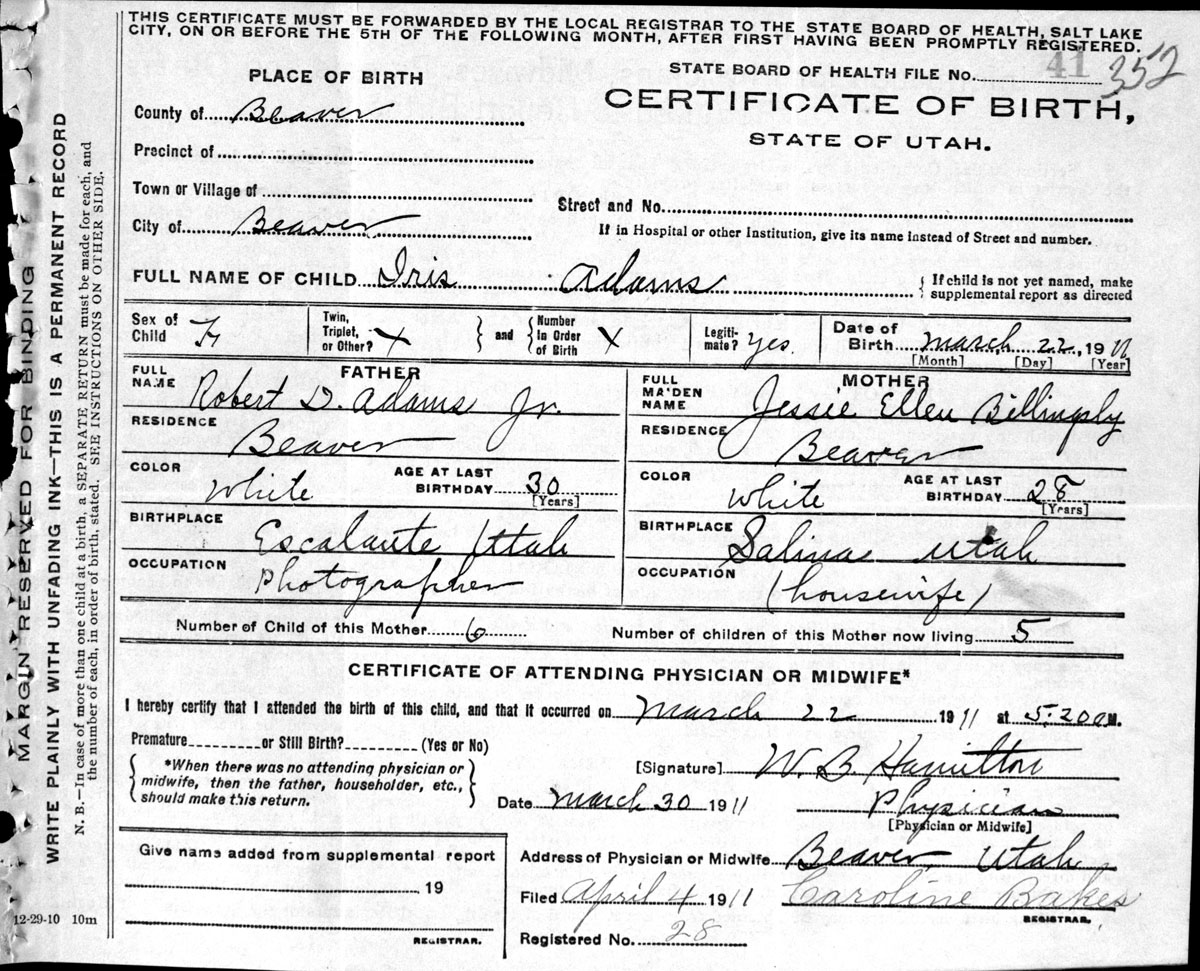 THIS CERTIFICATE MUST BE FORWARDED BY THE LOCAL REGISTRAR TO THE STATE BOARD OF HEALTH, SALT LAKE
CITY, ON OR BEFORE THE 5TH OF THE FOLLOWING MONTH, AFTER FIRST HAVING BEEN PROMPTLY REGISTERED.
PLACE OF BIRTH
STATE BOARD OF HEALTH FILE No. 41 352
County of Beaver
CERTIFICATE OF BIRTH,
STATE OF UTAH.
Precinct of
Town or Village of
Street and No.
City of Beaver
If in Hospital or other Institution, give its name instead of Street and number.
FULL NAME OF CHILD Iris Adams { If child is not yet named, make
supplemental report as directed
Sex of
Child F
Twin,
Triplet,
or Other? X } and { Number
In Order
of Birth X
Legiti-
mate? Yes.
Date of
Birth March 22, 1911
[Month] [Day] [Year]
FATHER
FULL
NAME Robert D. Adams Jr.
RESIDENCE Beaver
COLOR White
AGE AT LAST
BIRTHDAY 30
[Years]
BIRTHPLACE Escalante Utah
OCCUPATION Photographer
MOTHER
FULL
MAIDEN
NAME Jessie Ellen Billingsly
RESIDENCE Beaver
COLOR White
AGE AT LAST
BIRTHDAY 28
[Years]
BIRTHPLACE Salina Utah
OCCUPATION (housewife)
Number of Child of this Mother 6
Number of children of this Mother now living 5
CERTIFICATE OF ATTENDING PHYSICIAN OR MIDWIFE*
I hereby certify that I attended the birth of this child, and that it occurred on March 22 1911 at 5:20 a M.
Premature or Still Birth? (Yes or No)
{ *When there was no attending physician or
midwife, then the father, householder, etc.,
should make this return. }
[Signature] W. B Hamilton
Date March 30 1911
Physician
[Physician or Midwife]
Give name added from supplemental report
19
REGISTRAR.
Address of Physician or Midwife Beaver, Utah
Filed April 4 1911 Caroline Bakes
REGISTRAR.
Registered No. 28
12-29-10 10m
MARGIN RESERVED FOR BINDING
WRITE PLAINLY WITH UNFADING INK—THIS IS A PERMANENT RECORD
N. B.—In case of more than one child at a birth, a SEPARATE RETURN must be made for each, and
the number of each, in order of birth, stated. SEE INSTRUCTIONS ON OTHER SIDE.